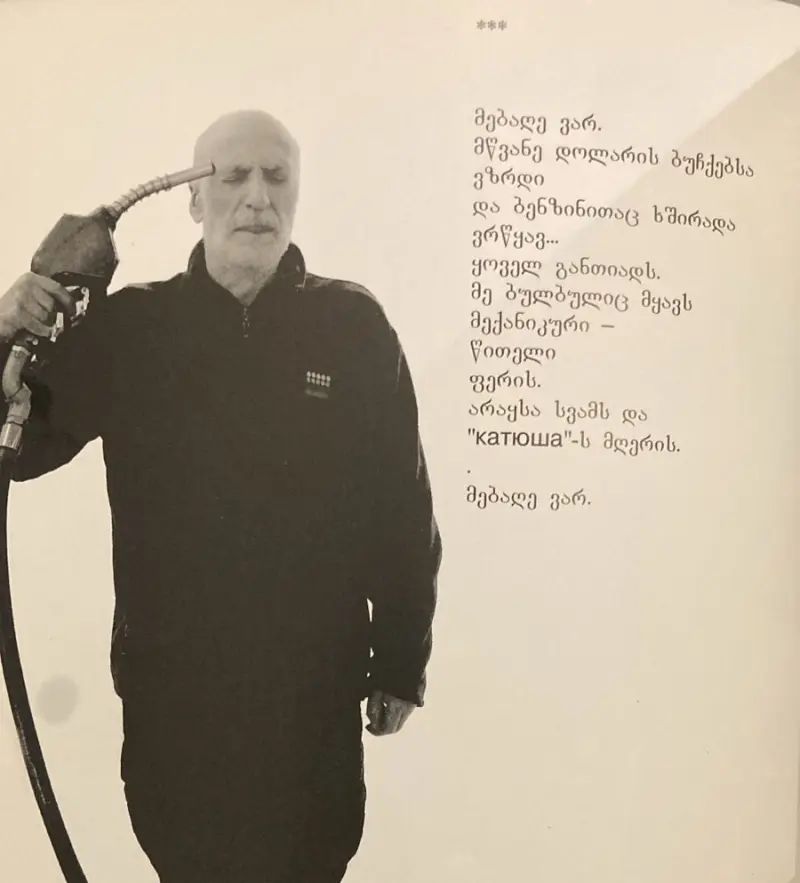 ***
მებაღე ვარ.
მწვანე დოლარის ბუჩქებსა
ვზრდი
და ბენზინითაც ხშირადა
ვრწყავ...
ყოველ განთიადს.
მე ბულბულიც მყავს
მექანიკური –
წითელი
ფერის.
არაყსა სვამს და
"катюша"-ს მღერის.
.
მებაღე ვარ.